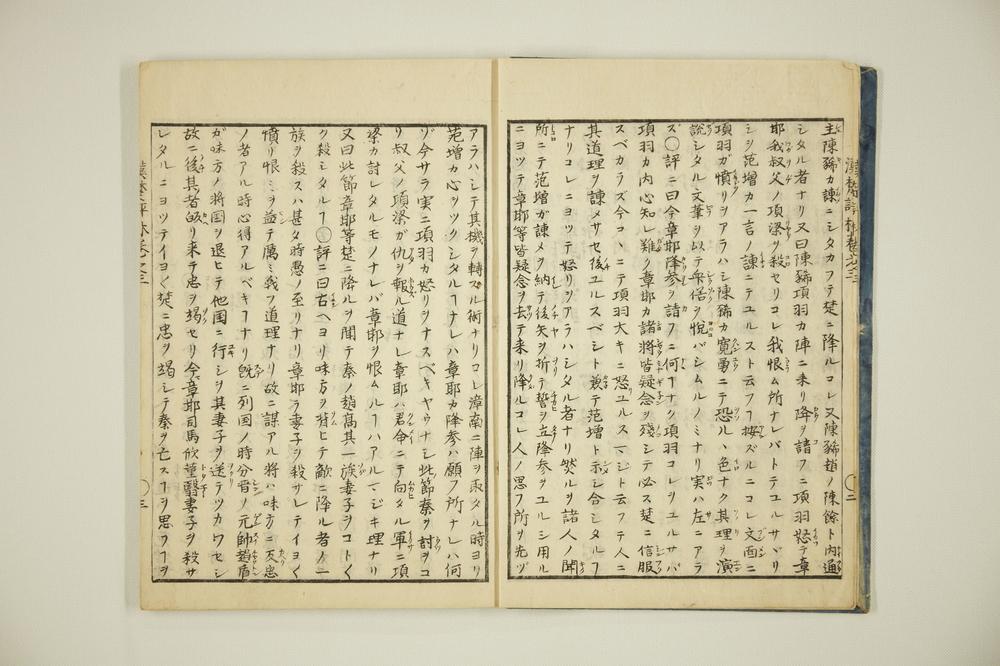 主陳豨カ諫ニシタカフテ楚ニ降ルコレ又陳豨趙ノ陳餘ト内通
シタル者ナリ又曰陳豨項羽カ陣ニ来リ降ヲ請フニ項羽怒テ章
邯我叔父ノ項梁ヲ殺セリコレ我恨ム所ナレバトテユルサヾリ
シヲ范増カ一言ノ諫ニテユルスト云フヿ按ズルニコレ文面ニ
項羽ガ憤リヲアラハシ陳豨カ寛勇ニテ恐ルヽ色ナク其理ヲ演
説シタル文筆ヲ以テ衆俗ヲ悦バシムルノミナリ実ハ左ニアラ
ズ○評ニ曰今章邯降参ヲ請フニ何ヿナク項羽コレヲユルサバ
項羽カ内心知レ難ク章邯カ諸将皆疑念ヲ残シテ必ス楚ニ信服
スベカラズ今コヽニテ項羽大キニ怒ユルスマジト云フテ人ニ
其道理ヲ諫メサセ後ユルスベシト兼テ范増ト示シ合シタルヿ
ナリコレニヨツテ怒リヲアラハシタル者ナリ然ルヲ諸人ノ聞
所ニテ范増ガ諫メヲ納テ後矢ヲ折テ誓ヲ立降参ヲユルシ用ル
ニヨツテ章邯等皆疑念ヲ去テ来リ降ルコレ人ノ思フ所ヲ先ヅ
漢楚評林巻之三
二
アラハシテ其機ヲ轉ズル術ナリコレ漳南ニ陣ヲ取タル時ヨリ
范増カ心ヲツクシタルヿナレハ章邯カ降参ハ願フ所ナレハ何
ゾ今サラ実ニ項羽カ怒リヲナスベキヤウナシ此節秦ヲ討ヲコ
リ叔父ノ項梁ガ仇ヲ報ル道ナレ章邯ハ君命ニテ向タル軍ニ項
梁カ討レタルモノナレバ章邯ヲ恨ムルヿハアルマジキ理ナリ
又曰此節章邯等楚ニ降ルヲ聞テ秦ノ趙高其一族妻子ヲコトゴトク
ク殺シタルヿ○評ニ曰古ヘヨリ味方ヲ背ヒテ敵ニ降ル者ノ一
族ヲ殺スハ甚タ時愚ノ至リナリ章邯ラ妻子ヲ殺サレテイヨ〱
憤リ恨ミヲ益テ厲ミ戦フ道理ナリ故ニ謀アル将ハ味方ニ反忠
ノ者アル時心得アルベキヿナリ既ニ列国ノ時分晋ノ元帥趙盾
ガ味方ノ将国ヲ退ヒテ他国ニ行シヲ其妻子ヲ送テツカワセシ
故ニ後其者皈リ来テ忠ヲ竭セリ今章邯司馬欣董翳妻子ヲ殺サ
レタルニヨツテイヨ〱楚ニ忠ヲ竭シテ秦ヲ亡スヿヲ思フヿヲ
漢楚評林巻之三
三